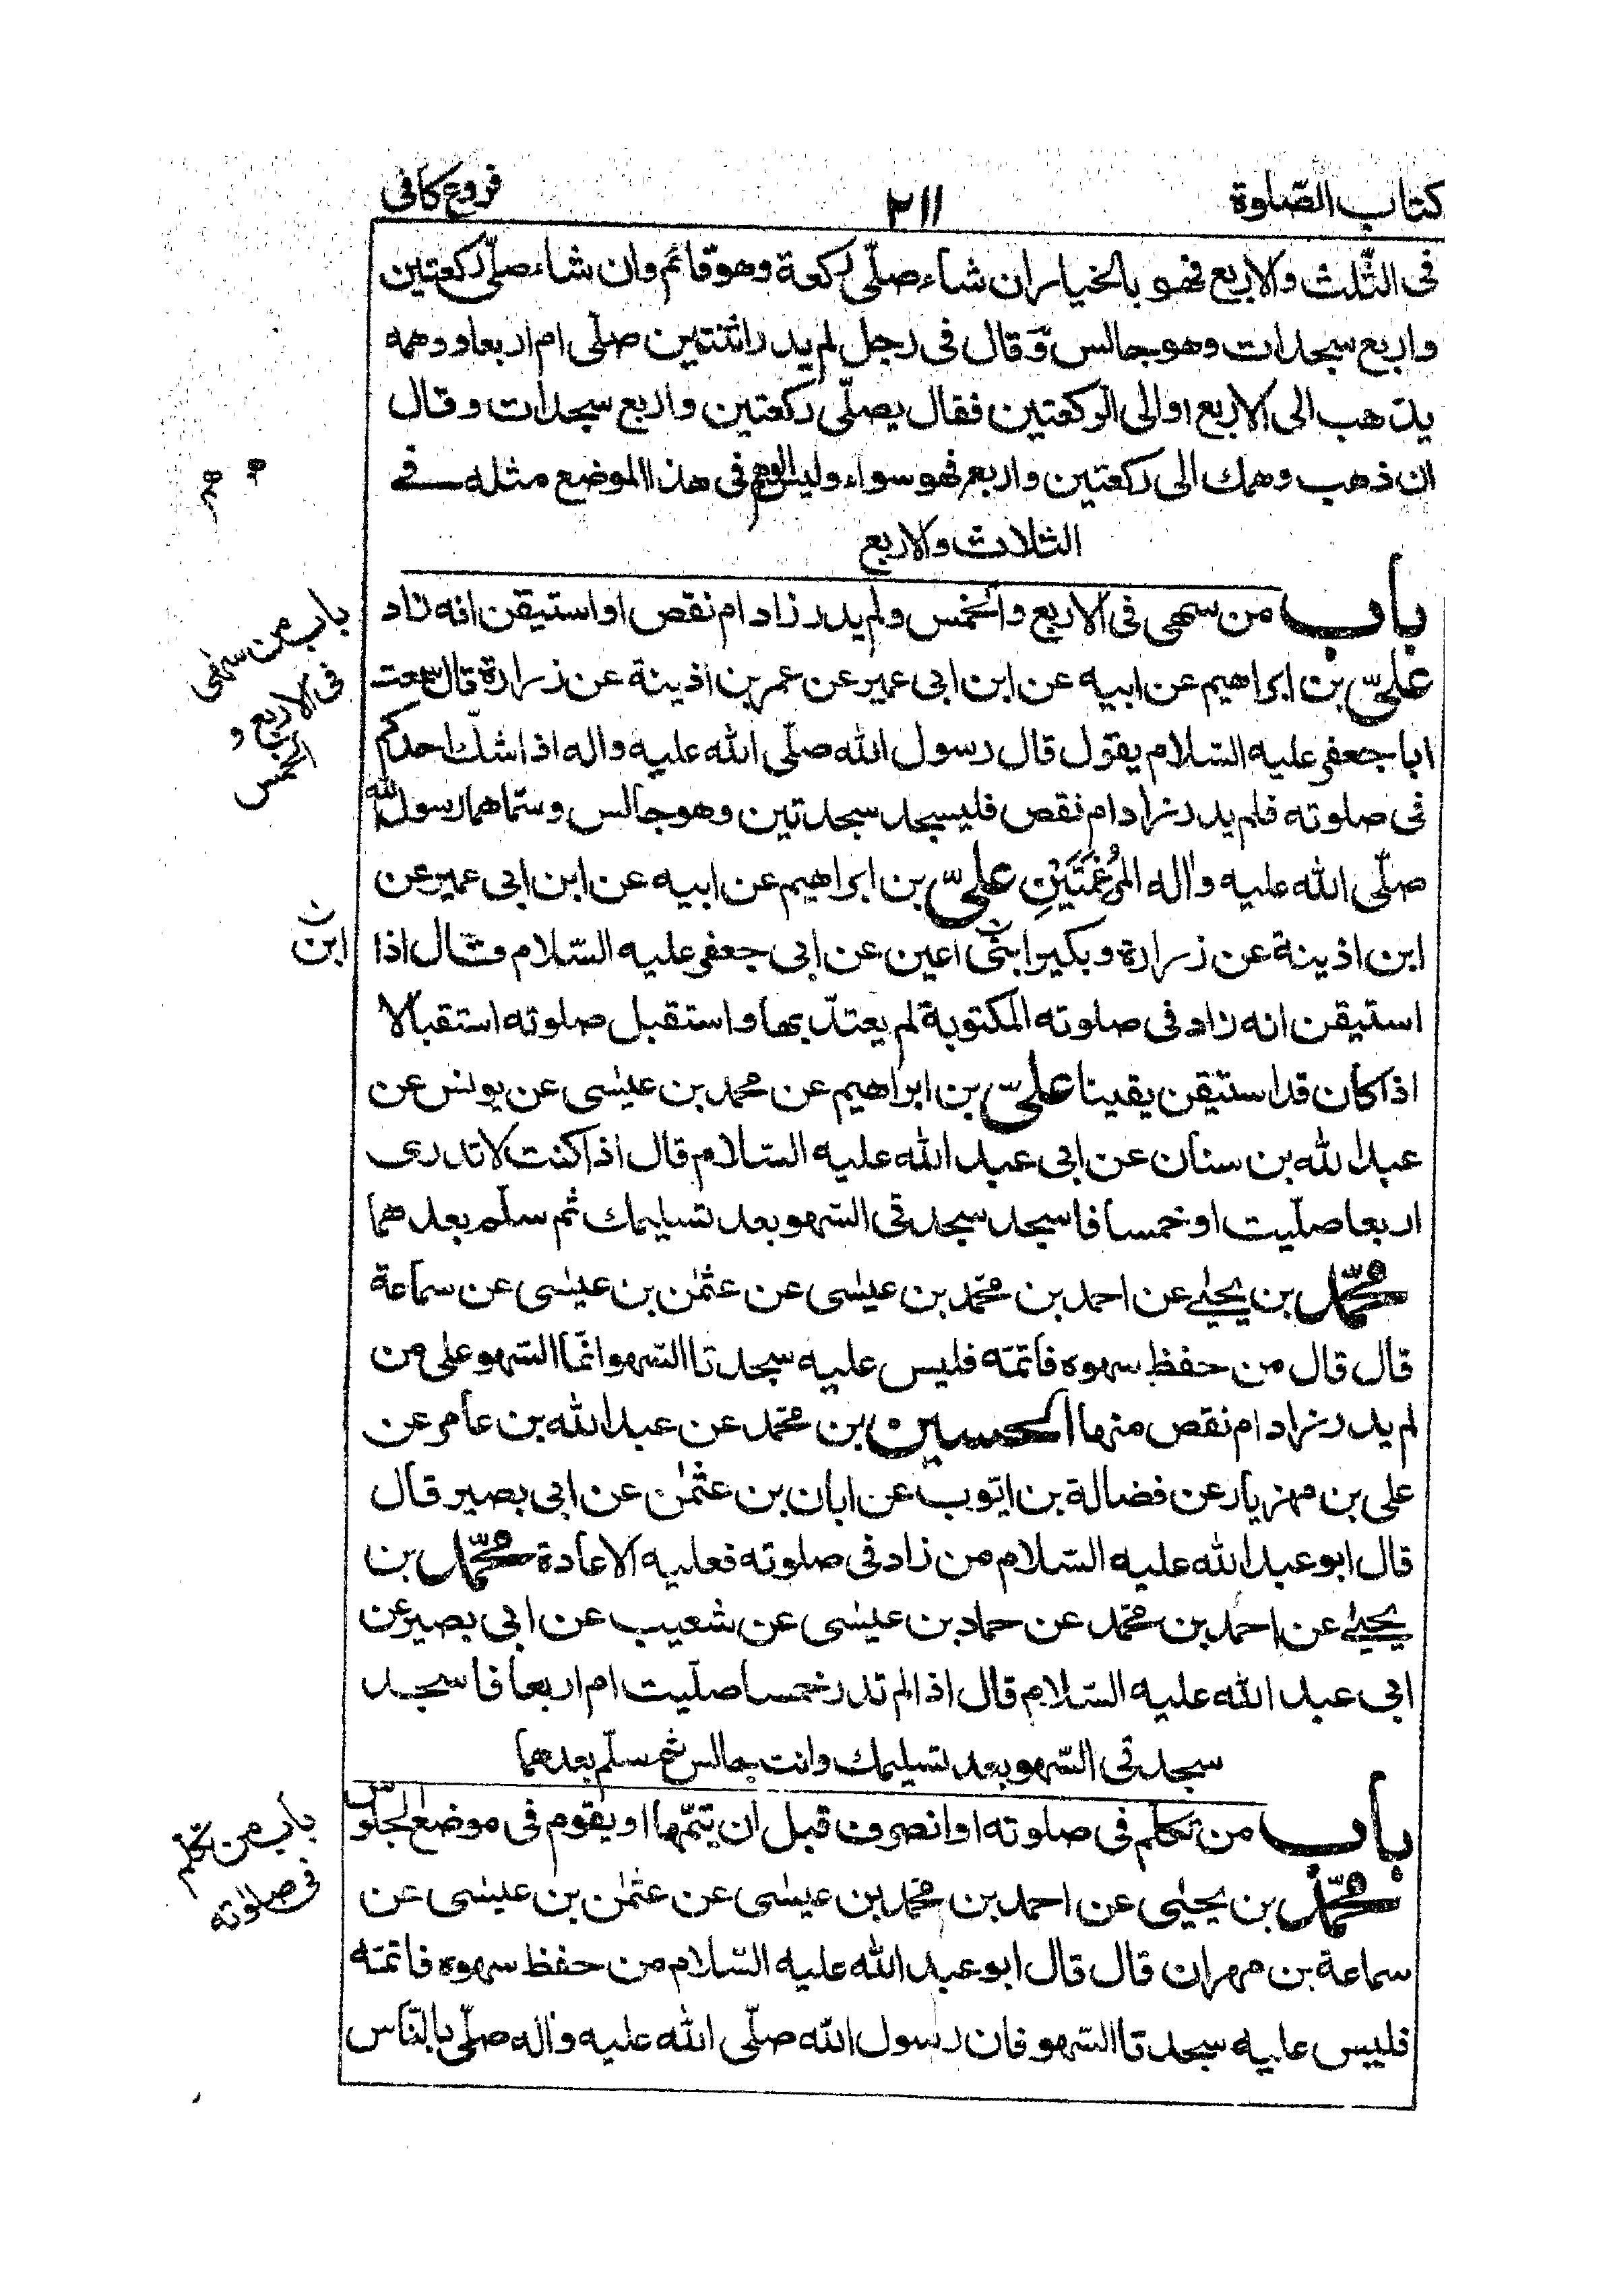 كتاب الصّلوة ٢١١ فروع كافى
فى الثّلث والاربع فهو بالخيار ان شاء صلّى ركعة وهو قائم وان شاء صلّى ركعتين
واربع سجدات وهو جالس وَقال فى رجل لم يدر اثنتين صلّى ام اربعا ووهمه
يذهب الى الاربع او الى الركعتين فقال يصلّى ركعتين واربع سجدات وقال
ان ذهب وهمك الى ركعتين واربع فهو سواء وليس الوهم فى هذا الموضع مثله فى
الثلاث والاربع
باب من سهى فى الاربع والخمس ولم يدر زاد ام نقص او استيقن انه زاد
علىّ بن ابراهيم عن ابيه عن ابن ابى عمير عن عمر بن اذينة عن زرارة قال سمعت
ابا جعفر عليه السّلام يقول قال رسول الله صلّى الله عليه واله اذا شكّ احدكم
فى صلوته فلم يدر زاد ام نقص فليسجد سجدتين وهو جالس وسمّاهما رسول الله
صلّى الله عليه واله المُرغِمَتَيْنِ علىّ بن ابراهيم عن ابيه عن ابن ابى عمير عن
ابن اذينة عن زرارة وبكير ابنى اعين عن ابى جعفر عليه السّلام قال اذا
استيقن انه زاد فى صلوته المكتوبة لم يعتدّ بها واستقبل صلوته استقبالا
اذا كان قد استيقن يقينا علىّ بن ابراهيم عن محمد بن عيسى عن يونس عن
عبد الله بن سنان عن ابى عبد الله عليه السّلام قال اذا كنت لا تدرى
اربعا صلّيت او خمسا فاسجد سجدتى السّهو بعد تسليمك ثم سلّم بعدهما
محمّد بن يحيى عن احمد بن محمّد بن عيسى عن عثمن بن عيسى عن سماعة
قال قال من حفظ سهوه فاتمّه فليس عليه سجدتا السّهو انّما السّهو على من
لم يدر زاد ام نقص منها الحسين بن محمّد عن عبد الله بن عامر عن
على بن مهزيار عن فضالة بن ايّوب عن ابان بن عثمن عن ابى بصير قال
قال ابو عبد الله عليه السّلام من زاد فى صلوته فعليه الاعادة محمّد بن
يحيى عن احمد بن محمّد عن حماد بن عيسى عن شعيب عن ابى بصير عن
ابى عبد الله عليه السّلام قال اذا لم تدر خمسا صلّيت ام اربعا فاسجد
سجدتى السّهو بعد تسليمك وانت جالس ثم سلّم بعدهما
باب من تكلّم فى صلوته او انصرف قبل ان يتمّها او يقوم فى موضع الجلوس
محمّد بن يحيى عن احمد بن محمّد بن عيسى عن عثمن بن عيسى عن
سماعة بن مهران قال قال ابو عبد الله عليه السّلام من حفظ سهوه فاتمّه
فليس عليه سجدتا السّهو فان رسول الله صلّى الله عليه واله صلّى بالنّاس
باب من سهى
فى الاربع و
الخمس
ابن
باب من تكلم
فى صلوته